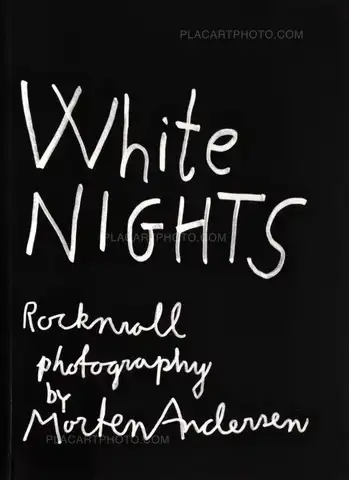 PLACARTPHOTO.COM
White
NIGHTS
PLACARTPHOTO.COM
Rocknroll
photography
by
Morten Andersen
PLACARTPHOTO.COM